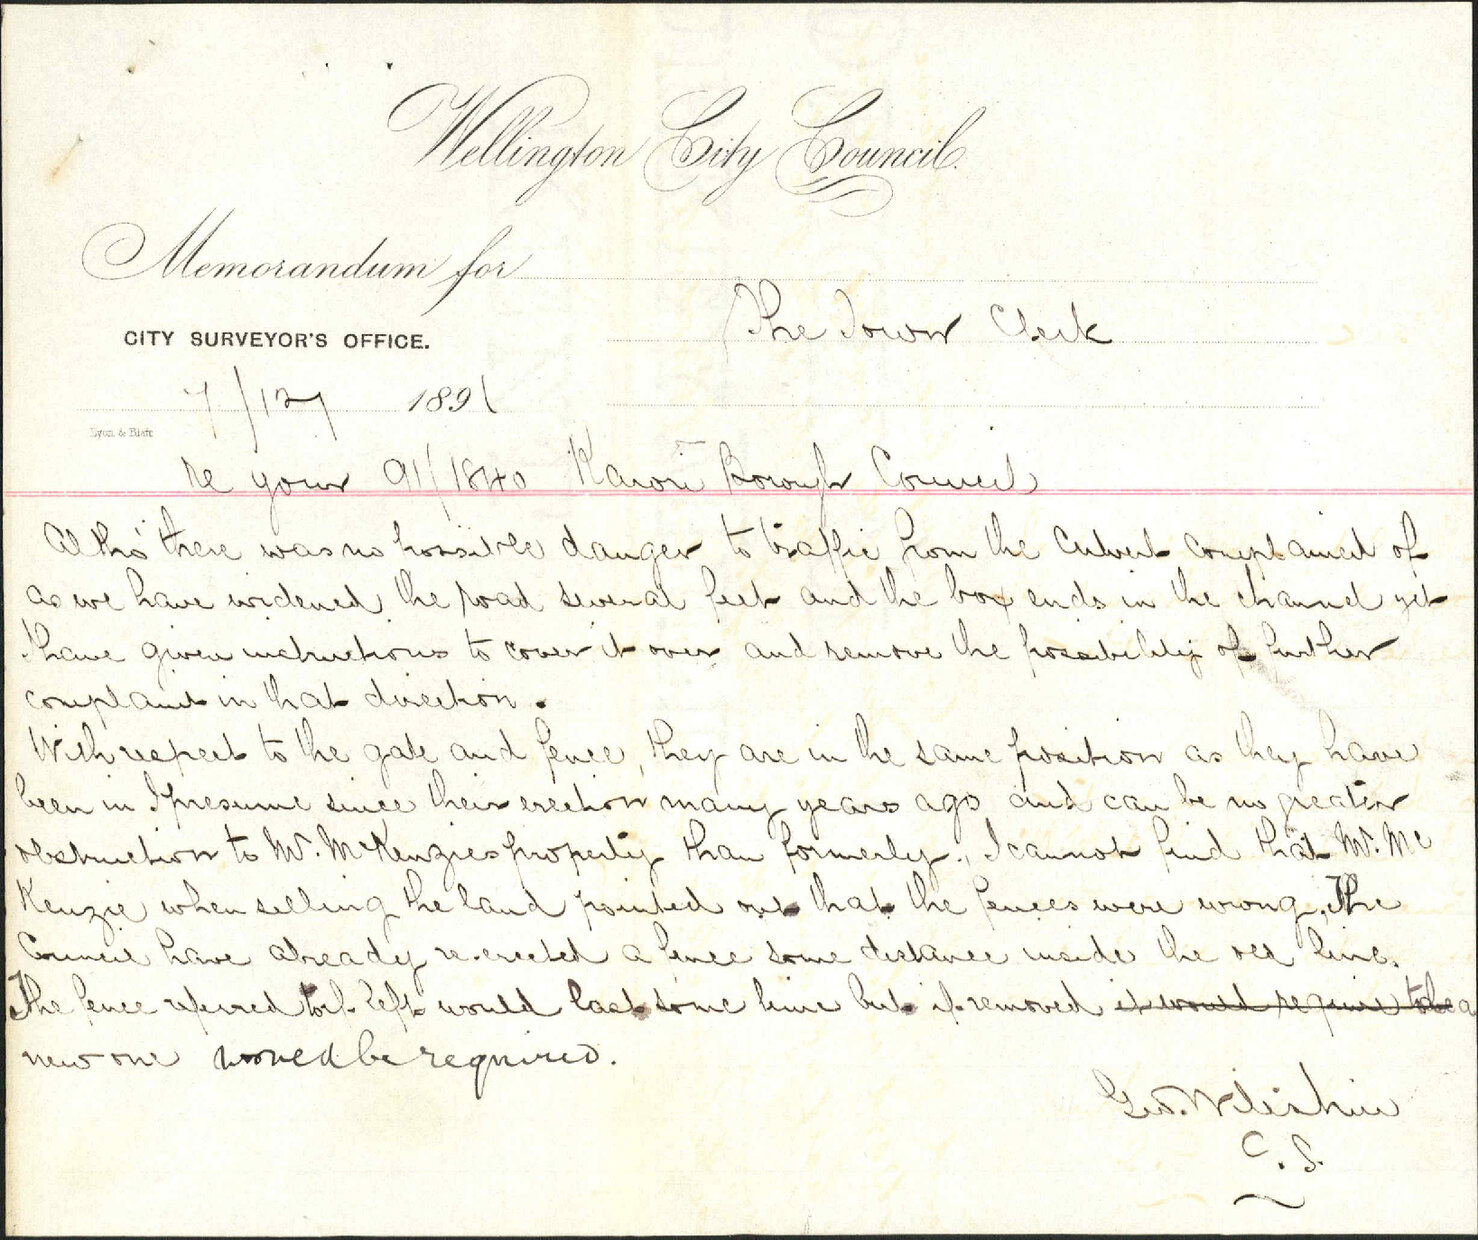 Wellington City Council.
Memorandum for
The Town Clerk
CITY SURVEYOR'S OFFICE.
7/12/ 1891
Lyon & Blair
re your 91/1840 Karori Borough Council
Altho' there was no possible danger to traffic from the Culvert complained of
as we have widened the road several feet and the box ends in the channel yet
I have given instructions to cover it over and remove the possibility of further
complaint in that direction.
With respect to the gate and fence, they are in the same position as they have
been in I presume since their erection many years ago and can be no greater
obstruction to Mr. McKenzies property than formerly., I cannot find that Mr. Mc
Kenzie when selling the land pointed out that the fences were wrong, The
Council have already re-erected a fence some distance inside the old line.
The fence referred to if left would last some time but if removed it would require to be a
new one would be required.
Geo. Wiltshire
C. S.